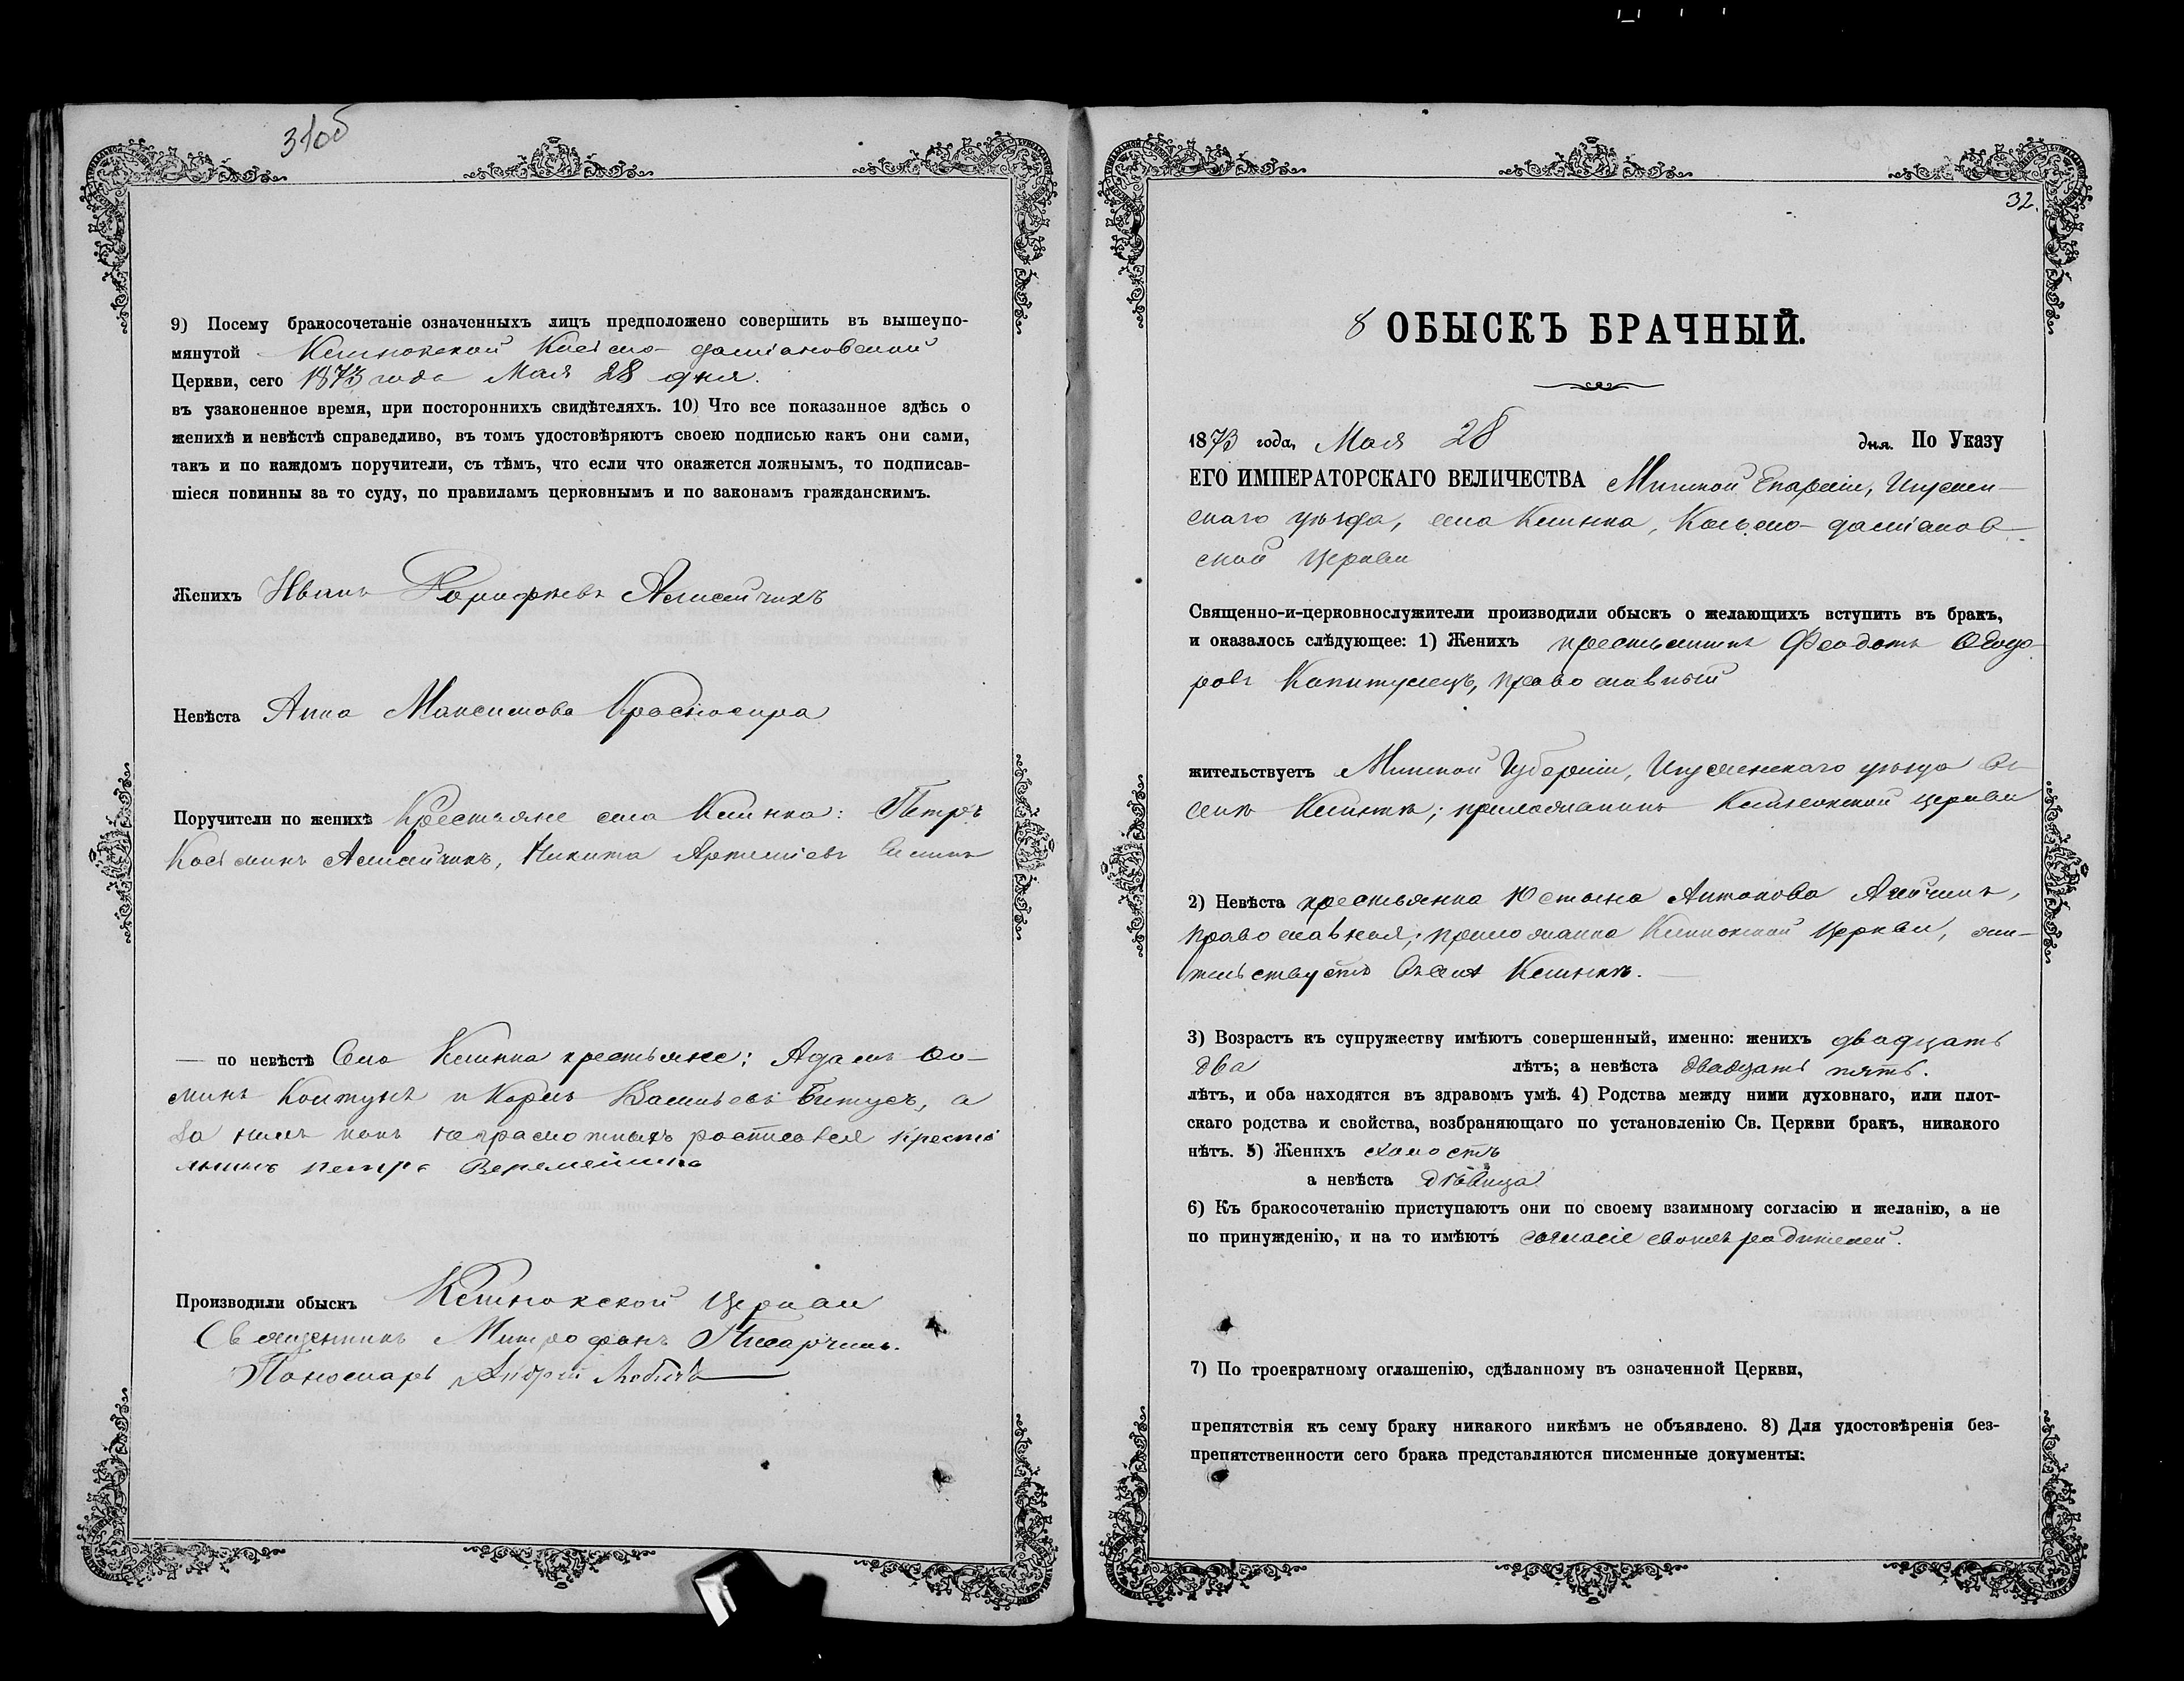 31об
9) Посему бракосочетаніе означенныхъ лицъ предположено совершить въ вышеупо-
мянутой Клинокской Косьмо-даміановской
Церкви, сего 1873 года Мая 28 дня.
въ узаконенное время, при постороннихъ свидѣтеляхъ. 10) Что все показанное здѣсь о
женихѣ и невѣстѣ справедливо, въ томъ удостовѣряютъ своею подписью какъ они сами,
такъ и по каждомъ поручители, съ тѣмъ, что если что окажется ложнымъ, то подписав-
шіеся повинны за то суду, по правиламъ церковнымъ и по законамъ гражданскимъ.
Женихъ Иванъ
Невѣста Анна Максимова
Поручители по женихѣ Крестьяне села Клинка: Петръ
Косьминъ Никита
— по невѣстѣ Села Клинка крестьяне; Адамъ Ѳо-
минъ Колтунъ и Карпъ Васильевъ Битусъ, а
за нихъ какъ неграмотныхъ росписался кресть
янинъ Петръ Веремейчикъ
Производили обыскъ Клинокской Церкви
Священникъ Митрофанъ
Пономарь Андрей
32.
8 ОБЫСКЪ БРАЧНЫЙ.
1873 года, Мая 28 дня. По Указу
ЕГО ИМПЕРАТОРСКАГО ВЕЛИЧЕСТВА Минской Епархіи, Игумен-
скаго уѣзда, села Клинка, Косьмо-даміанов-
ской Церкви
Священно-и-церковнослужители производили обыскъ о желающихъ вступить въ бракъ,
и оказалось слѣдующее: 1) Женихъ крестьянинъ Феодотъ Ѳеодо-
ровъ Капитулецъ, православный
жительствуетъ Минской Губерніи, Игуменскаго уѣзда въ
селѣ Клинкѣ; прихожанинъ Клинокской церкви
2) Невѣста крестьянка Юстына Антонова
православная, прихожанка Клинокской Церкви, жи-
тельствуетъ въ селѣ Клинкѣ.
3) Возрастъ къ супружеству имѣютъ совершенный, именно: женихъ двадцать
два лѣтъ; а невѣста двадцать пять.
лѣтъ, и оба находятся въ здравомъ умѣ. 4) Родства между ними духовнаго, или плот-
скаго родства и свойства, возбраняющаго по установленію Св. Церкви бракъ, никакого
нѣтъ. 5) Женихъ холостъ
а невѣста дѣвица
6) Къ бракосочетанію приступаютъ они по своему взаимному согласію и желанію, а не
по принужденію, и на то имѣютъ согласіе своихъ родителей.
7) По троекратному оглашенію, сдѣланному въ означенной Церкви,
препятствія къ сему браку никакого никѣмъ не объявлено. 8) Для удостовѣренія без-
препятственности сего брака представляются писменные документы: